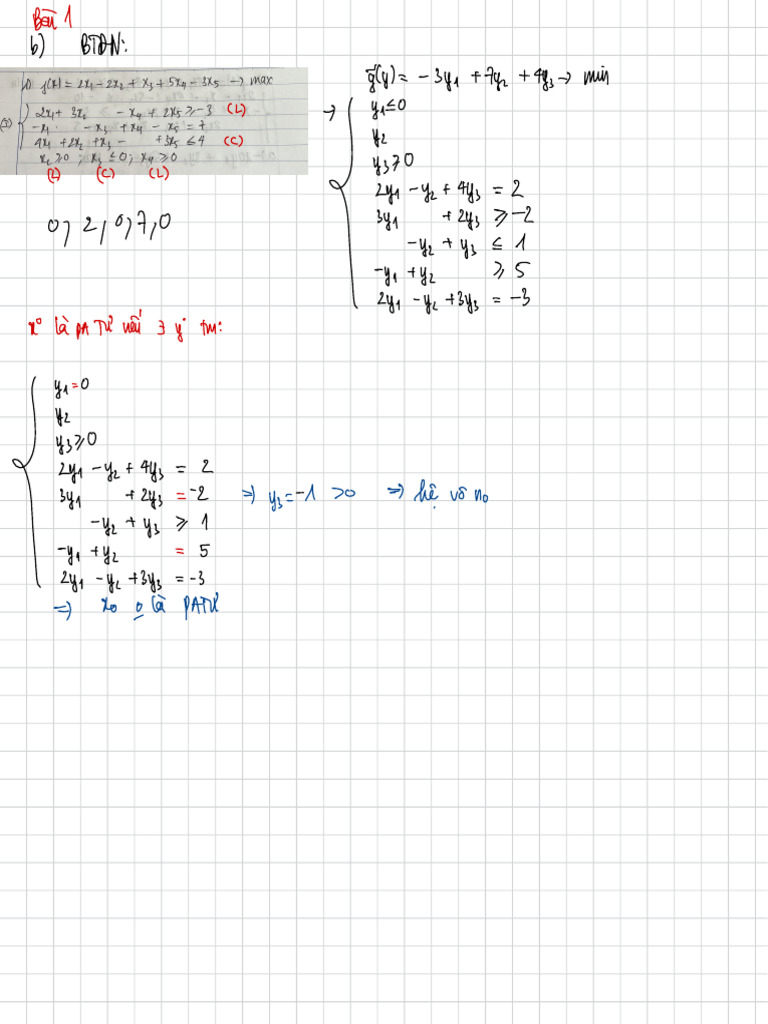 Bài 1
b) BTĐN:
g(x) = 2x₁ - 2x₂ + x₃ + 5x₄ - 3x₅ → max
2x₁ + 3x₂ - x₄ + 2x₅ ≥ -3 (L)
-x₁ - x₃ + x₄ - x₅ = 7
4x₁ + 2x₂ + x₃ - + 3x₅ ≤ 4 (C)
x₂ ≥ 0 ; x₃ ≤ 0 ; x₄ ≥ 0
(L) (C) (L)
0, 2, 0, 7, 0
g̃(y) = -3y₁ + 7y₂ + 4y₃ → min
→ y₁ ≤ 0
y₂
y₃ ≥ 0
2y₁ - y₂ + 4y₃ = 2
3y₁ + 2y₃ ≥ -2
-y₂ + y₃ ≤ 1
-y₁ + y₂ ≥ 5
2y₁ - y₂ + 3y₃ = -3
x⁰ là PATƯ nếu ∃ y⁰ tm:
y₁ = 0
y₂
y₃ ≥ 0
2y₁ - y₂ + 4y₃ = 2
3y₁ + 2y₃ = -2 ⇒ y₃ = -1 > 0 ⇒ hệ vô n₀
-y₂ + y₃ ≥ 1
-y₁ + y₂ = 5
2y₁ - y₂ + 3y₃ = -3
⇒ x₀ o là PATƯ